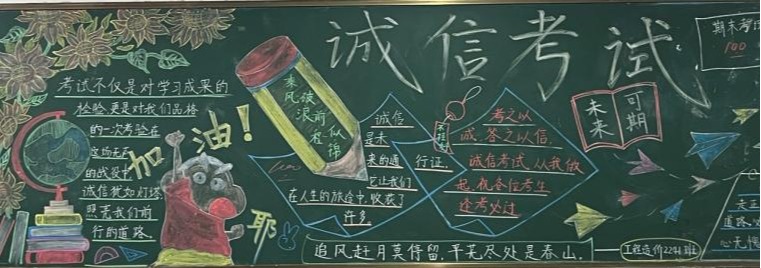 诚信考试
考试不仅是对学习成果的
检验更是对我们品格
的一次考验在
这场无声
的战役中
诚信犹如灯塔
照亮我们前
行的道路
加油!
耶
乘风破浪
前程似锦
诚信
是未
来的通行证,
它让我们
在人生的旅途中,收获了
许多
考之以
诚,答之以信,
诚信考试,从我做
起,祝各位考生
逢考必过
未来
可期
期末考
100
追风赶月莫停留,平芜尽处是春山,
道路
心无愧